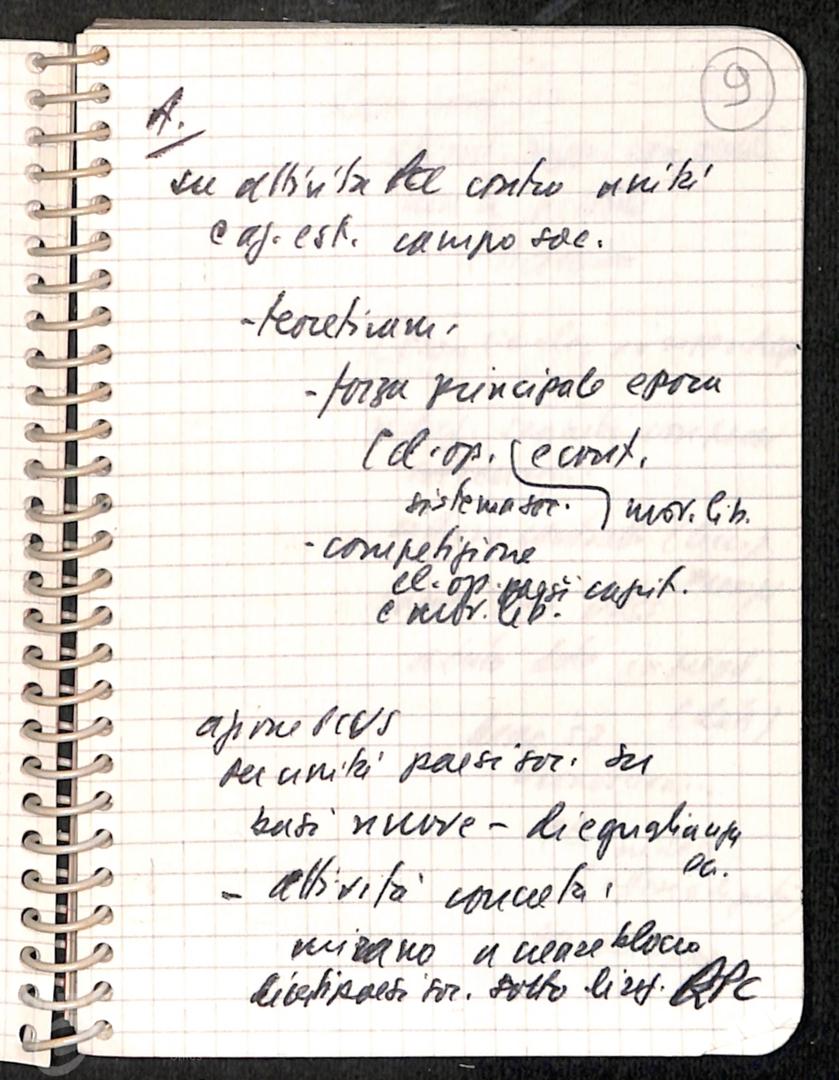 9
A.
su attività PCC contro unità
e ag. est. campo soc.
- teoreticam.
- forza principale epoca
cl. op. e cont.
sistema soc. mov. lib.
- competizione
cl. op. paesi capit.
e mov. lib.
azione PCUS
per unità paesi soc. su
basi nuove - di eguaglianza
ec.
- attività concreta:
mirano a creare blocco
di certi paesi soc. sotto direz. RPC